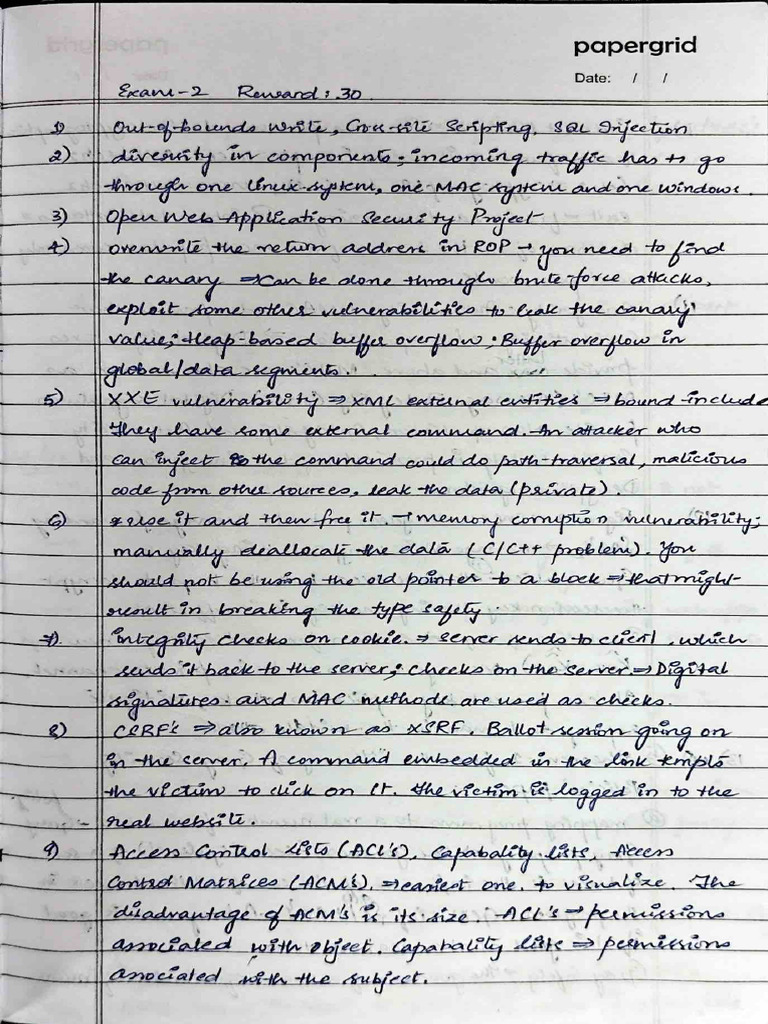 papergrid
Date: / /
Exam-2 Reward: 30
1) Out-of-bounds write, Cross-site Scripting, SQL Injection
2) diversity in components; incoming traffic has to go
through one linux system, one MAC system and one windows.
3) Open Web Application Security Project
4) overwrite the return address in ROP → you need to find
the canary ⇒ can be done through brute-force attacks,
exploit some other vulnerabilities to leak the canary
value; Heap-based buffer overflow; Buffer overflow in
global/data segments.
5) XXE vulnerability ⇒ XML external entities ⇒ bound include
They have some external command. An attacker who
can inject the command could do path-traversal, malicious
code from other sources, leak the data (private).
6) use it and then free it. → memory corruption vulnerability;
manually deallocate the data (C/C++ problem). You
should not be using the old pointer to a block ⇒ that might
result in breaking the type safety.
7) integrity checks on cookie. ⇒ server sends to client, which
sends it back to the server; checks on the server ⇒ Digital
signatures and MAC methods are used as checks.
8) CSRF's ⇒ also known as XSRF. Ballot session going on
in the server. A command embedded in the link tempts
the victim to click on it. The victim is logged in to the
real website.
9) Access Control lists (ACL's), Capabality lists, Access
Control Matrices (ACM's). ⇒ easiest one. to visualize. The
disadvantage of ACM's is its size. ACL's → permissions
associated with object. Capabality lists ⇒ permissions
associated with the subject.